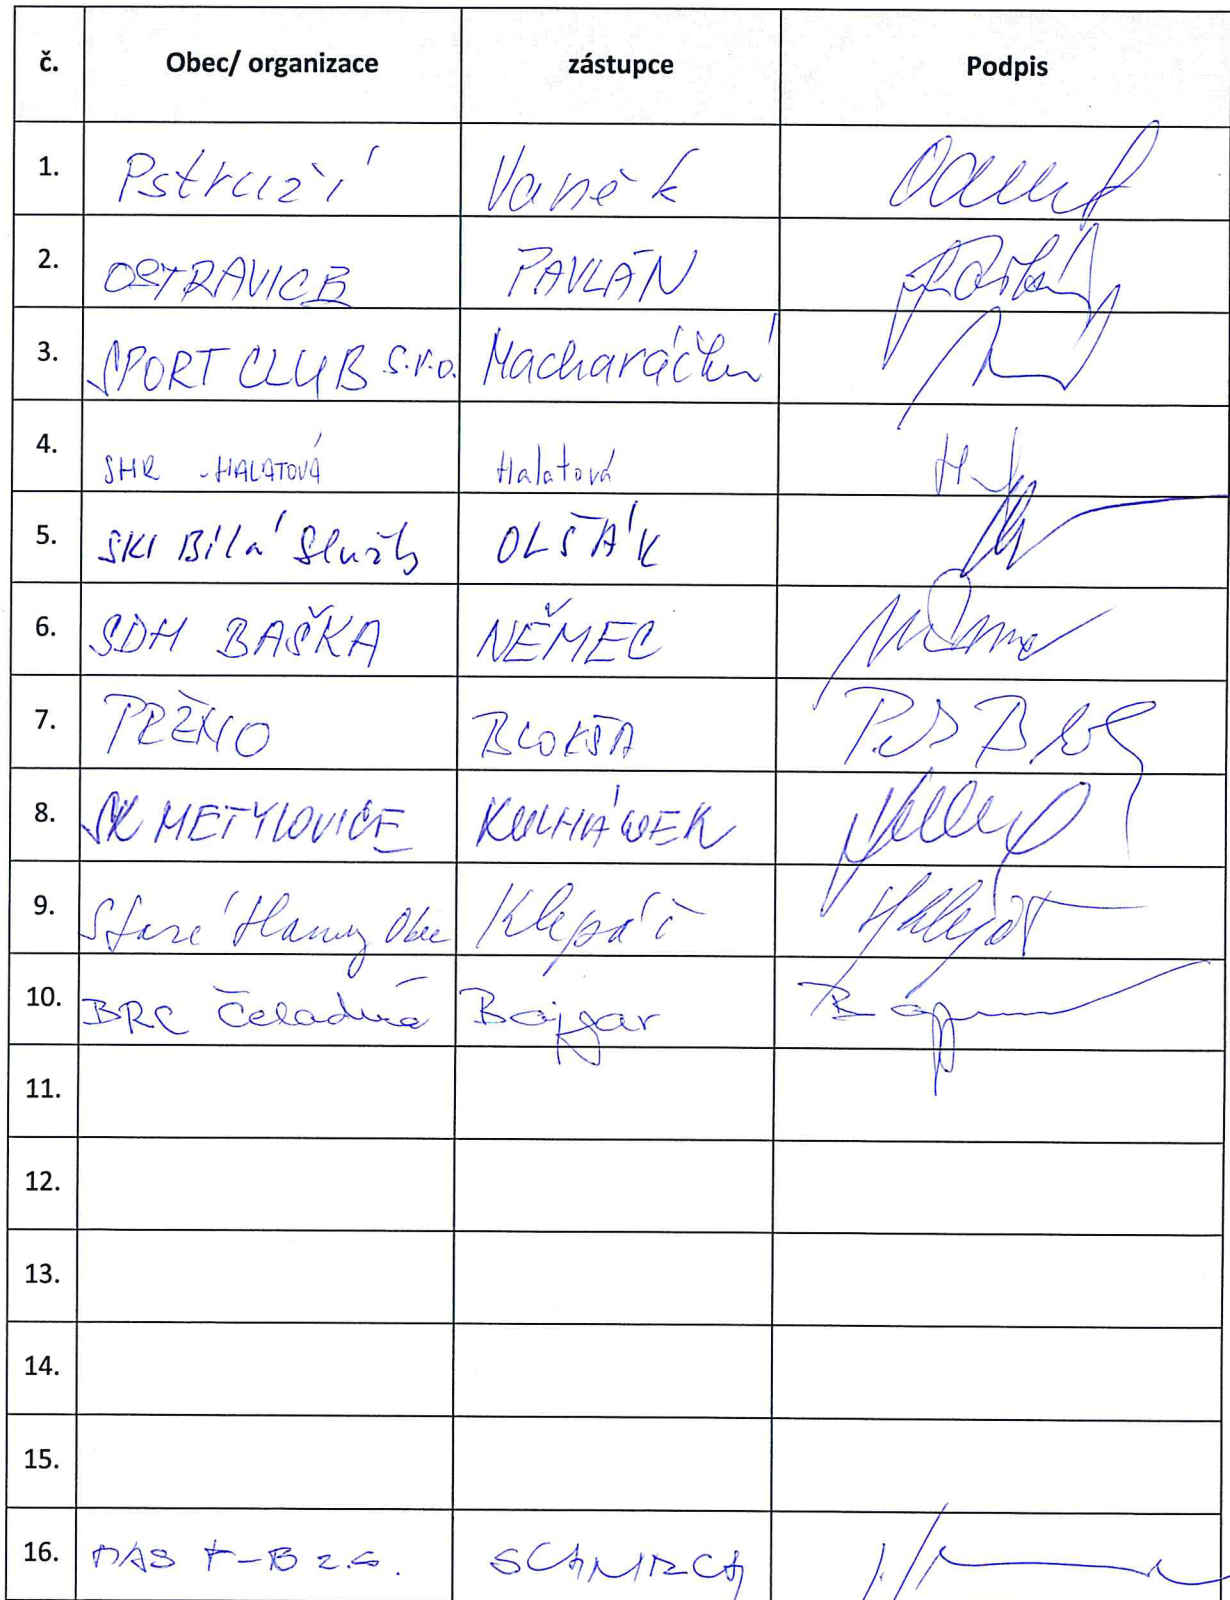 č. Obec/ organizace zástupce Podpis
1. Pstruží Vaněk
2. OSTRAVICE PAVLÁN
3. SPORT CLUB s.r.o.
4. SHR - HALATOVÁ Halatová
5. SKI Bílá Služby OLŠÁK
6. SDH BAŠKA NĚMEC
7. PRŽNO BLOKŠA
8. SK METYLOVICE KULHÁNEK
9. Staré Hamry Obec Klepáč
10. BRC Čeladná Bajgar
11.
12.
13.
14.
15.
16. MAS F-B z.s.